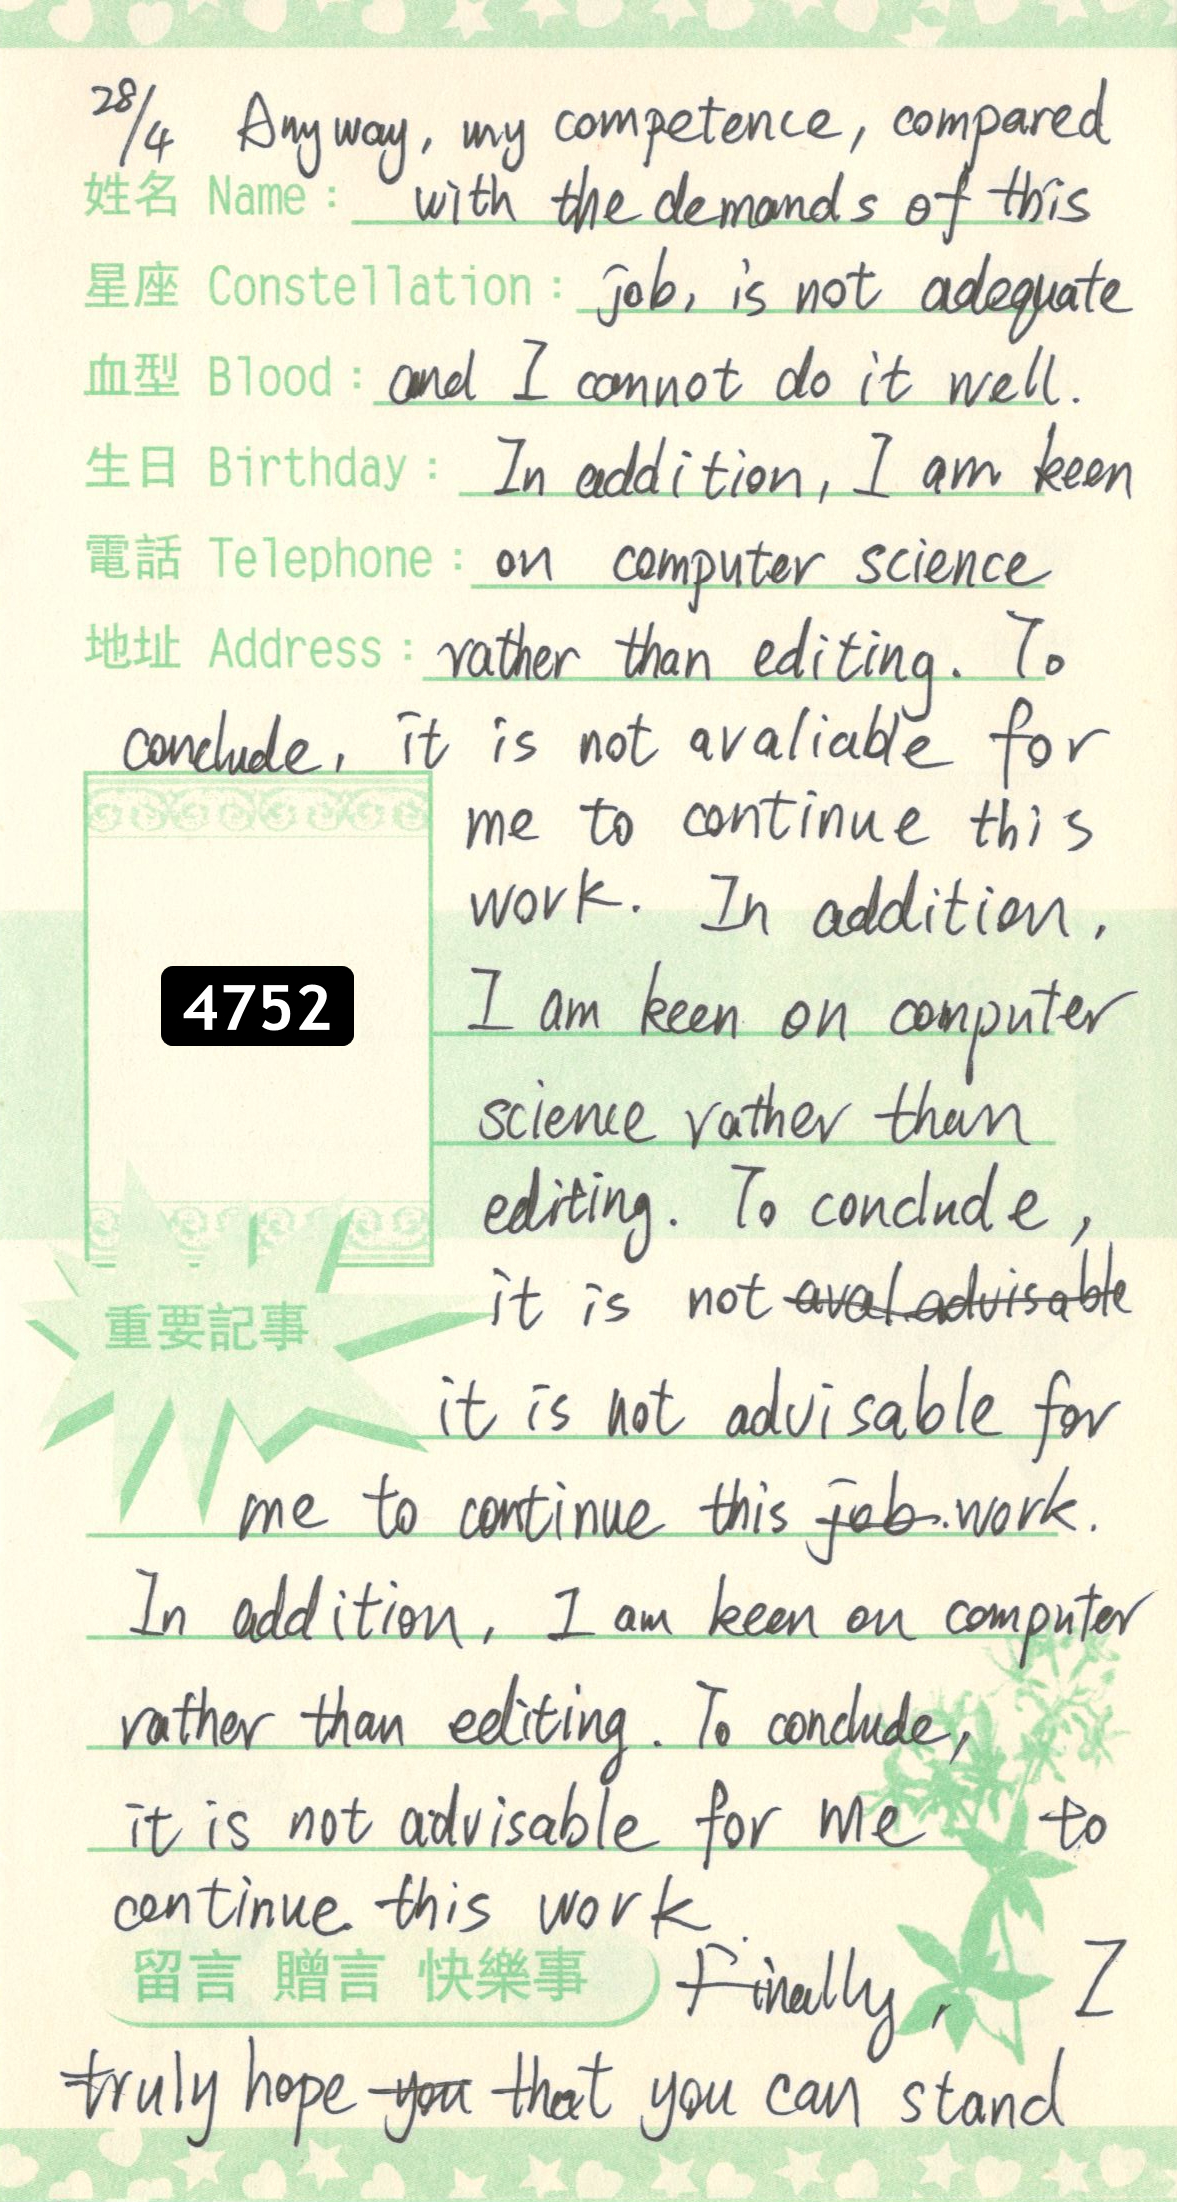 28/4 Anyway, my competence, compared
姓名 Name: with the demands of this
星座 Constellation: job, is not adequate
血型 Blood: and I cannot do it well.
生日 Birthday: In addition, I am keen
電話 Telephone: on computer science
地址 Address: rather than editing. To
conclude, it is not avaliable for
me to continue this
work. In addition,
4752 I am keen on computer
science rather than
editing. To conclude,
重要記事 it is not aval advisable
it is not advisable for
me to continue this job. work.
In addition, I am keen on computer
rather than eeliting. To conclude,
it is not advisable for me to
continue this work
留言 贈言 快樂事 Finally, I
truly hope you that you can stand